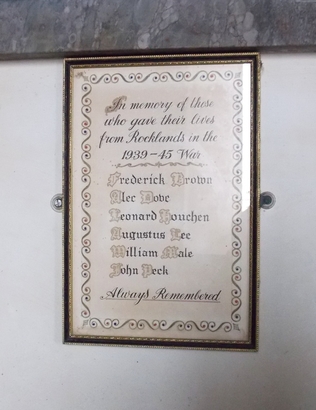 In memory of those
who gave their lives
from Rocklands in the
1939-45 War
Frederick Brown
Alec Dove
Leonard Houchen
Augustus Lee
William Male
John Peck
Always Remembered